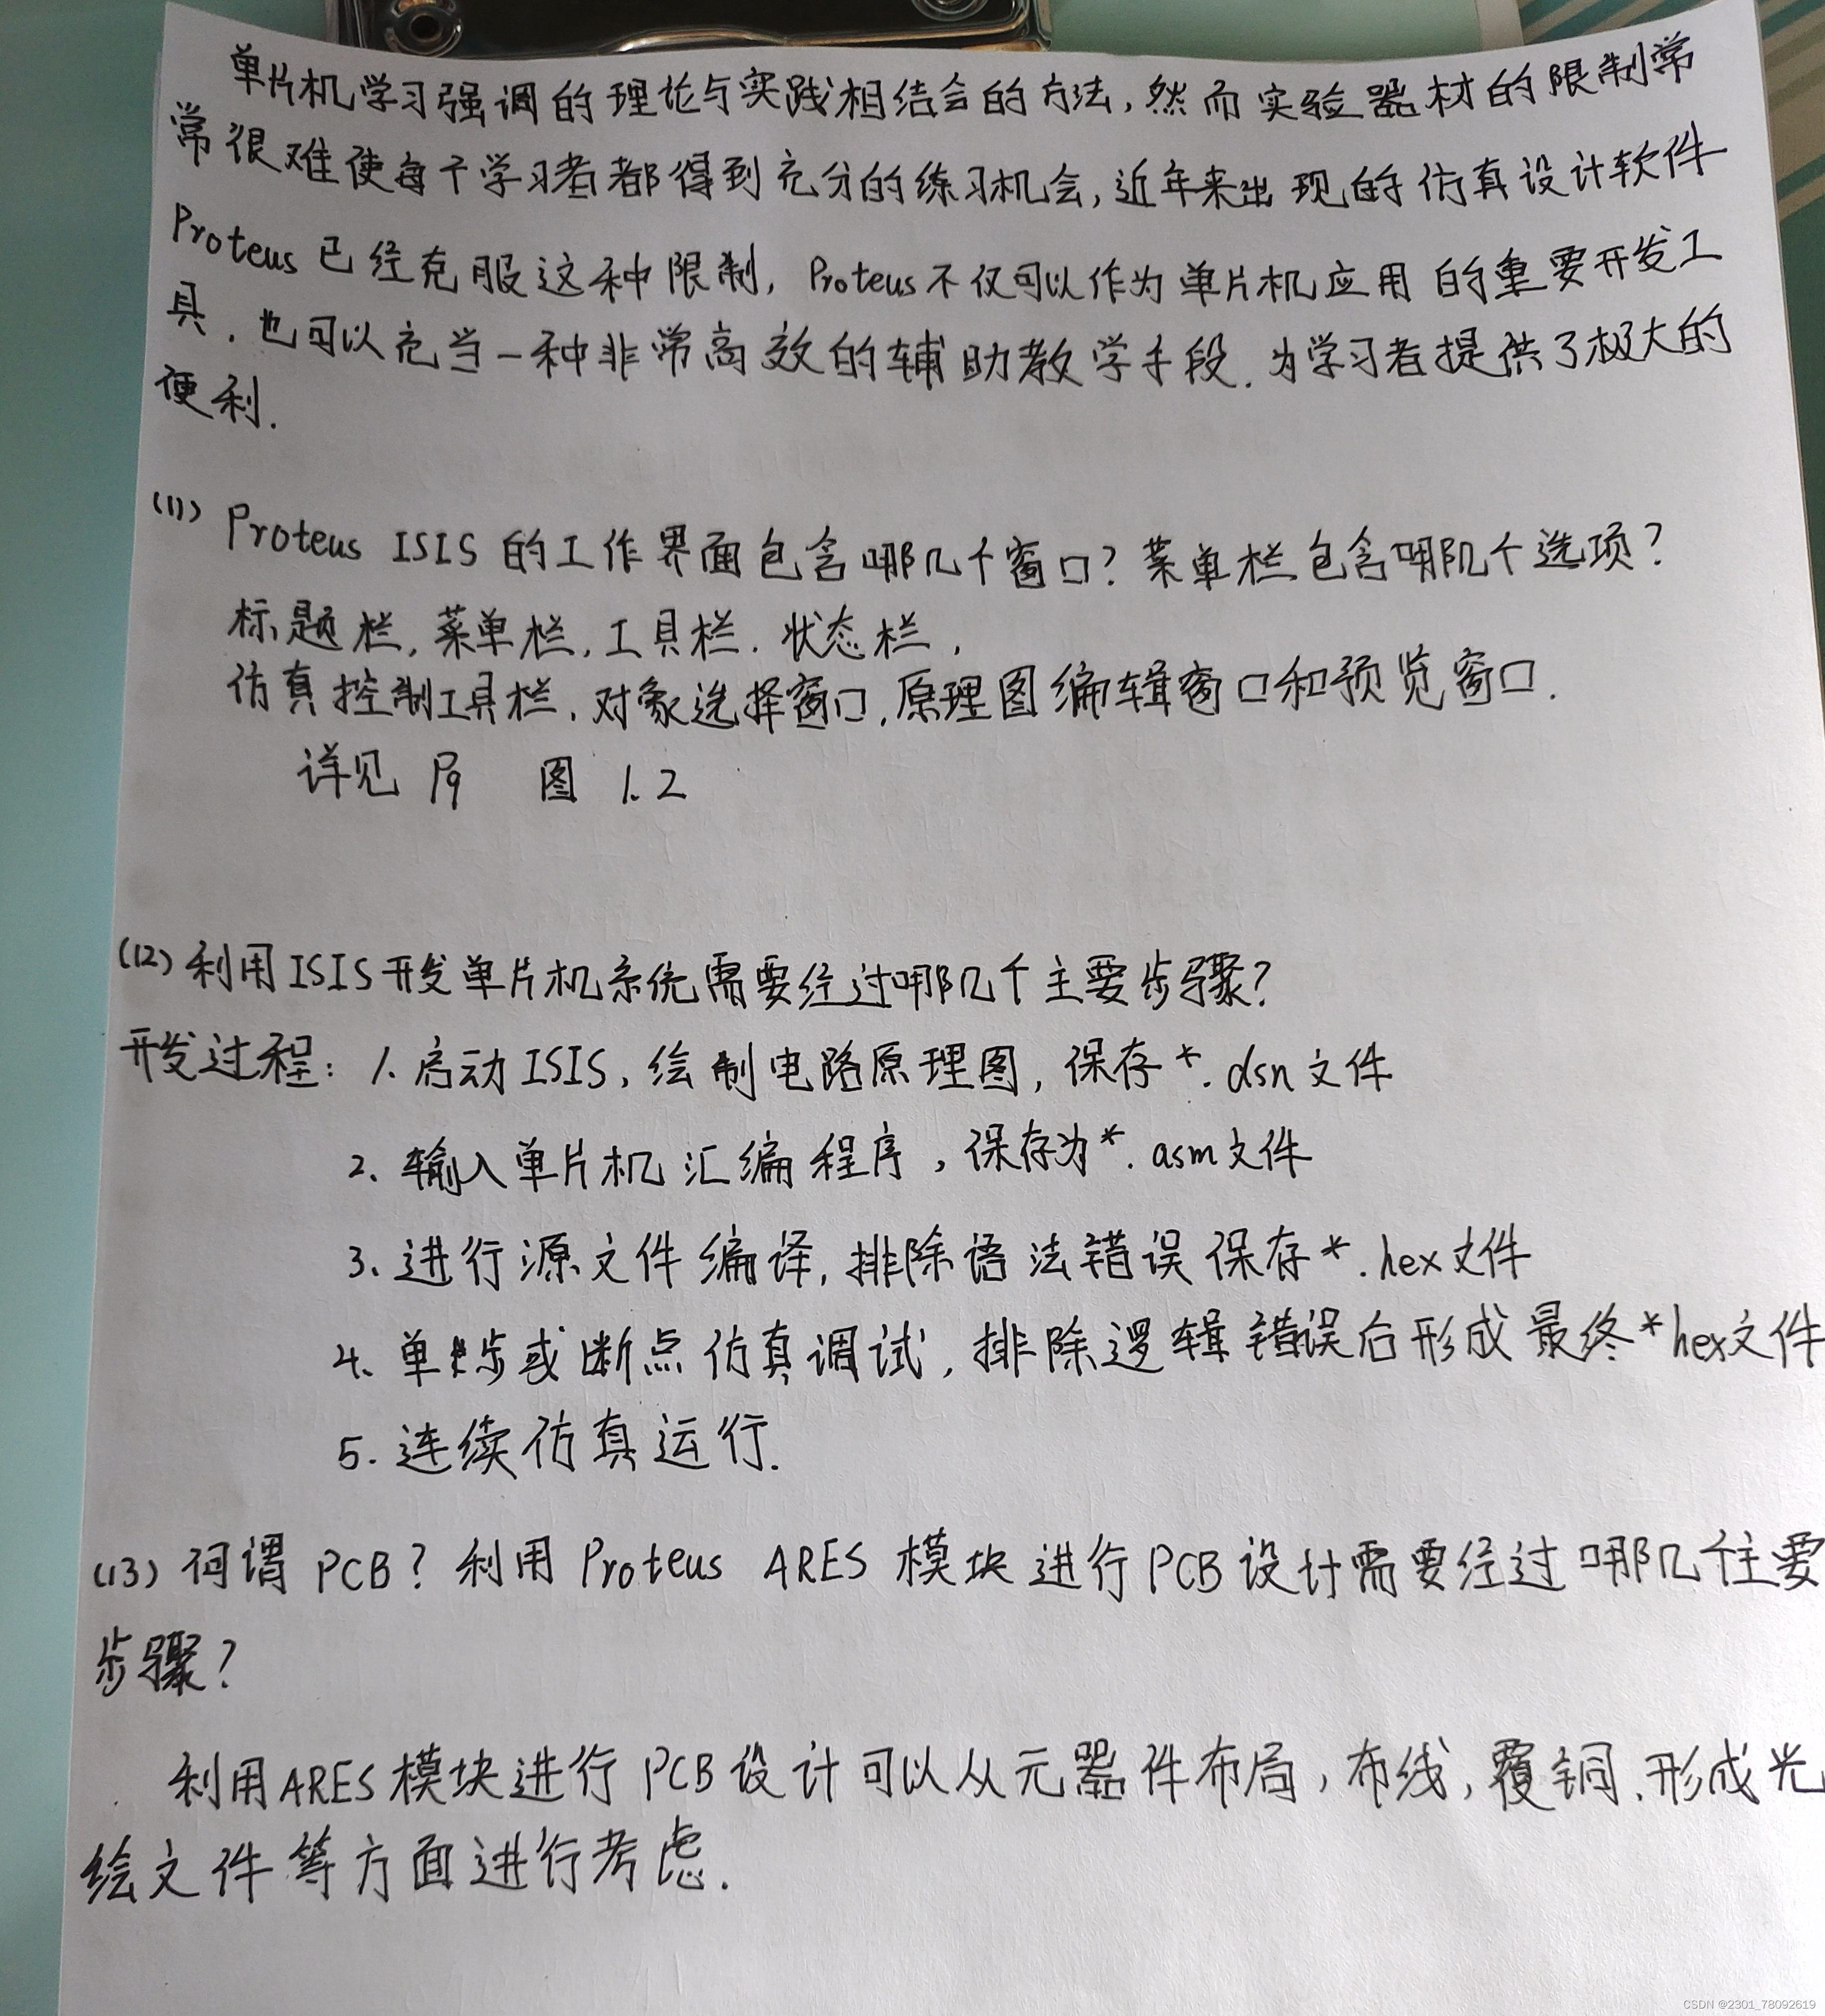 单片机学习强调的理论与实践相结合的方法,然而实验器材的限制常
常很难使每个学习者都得到充分的练习机会,近年来出现的仿真设计软件
Proteus已经克服这种限制,Proteus不仅可以作为单片机应用的重要开发工
具.也可以充当一种非常高效的辅助教学手段.为学习者提供了极大的
便利.
(11) Proteus ISIS的工作界面包含哪几个窗口?菜单栏包含哪几个选项?
标题栏,菜单栏,工具栏.状态栏,
仿真控制工具栏,对象选择窗口,原理图编辑窗口和预览窗口.
详见 P9 图 1.2
(12)利用ISIS开发单片机系统需要经过哪几个主要步骤?
开发过程: 1.启动ISIS,绘制电路原理图,保存*.dsn文件
2.输入单片机汇编程序,保存为*.asm文件
3.进行源文件编译,排除语法错误保存*.hex文件
4.单步或断点仿真调试,排除逻辑错误后形成最终*hex文件
5.连续仿真运行.
(13)何谓PCB?利用Proteus ARES模块进行PCB设计需要经过哪几个主要
步骤?
利用ARES模块进行PCB设计可以从元器件布局,布线,覆铜.形成光
绘文件等方面进行考虑.
CSDN @2301_78092619